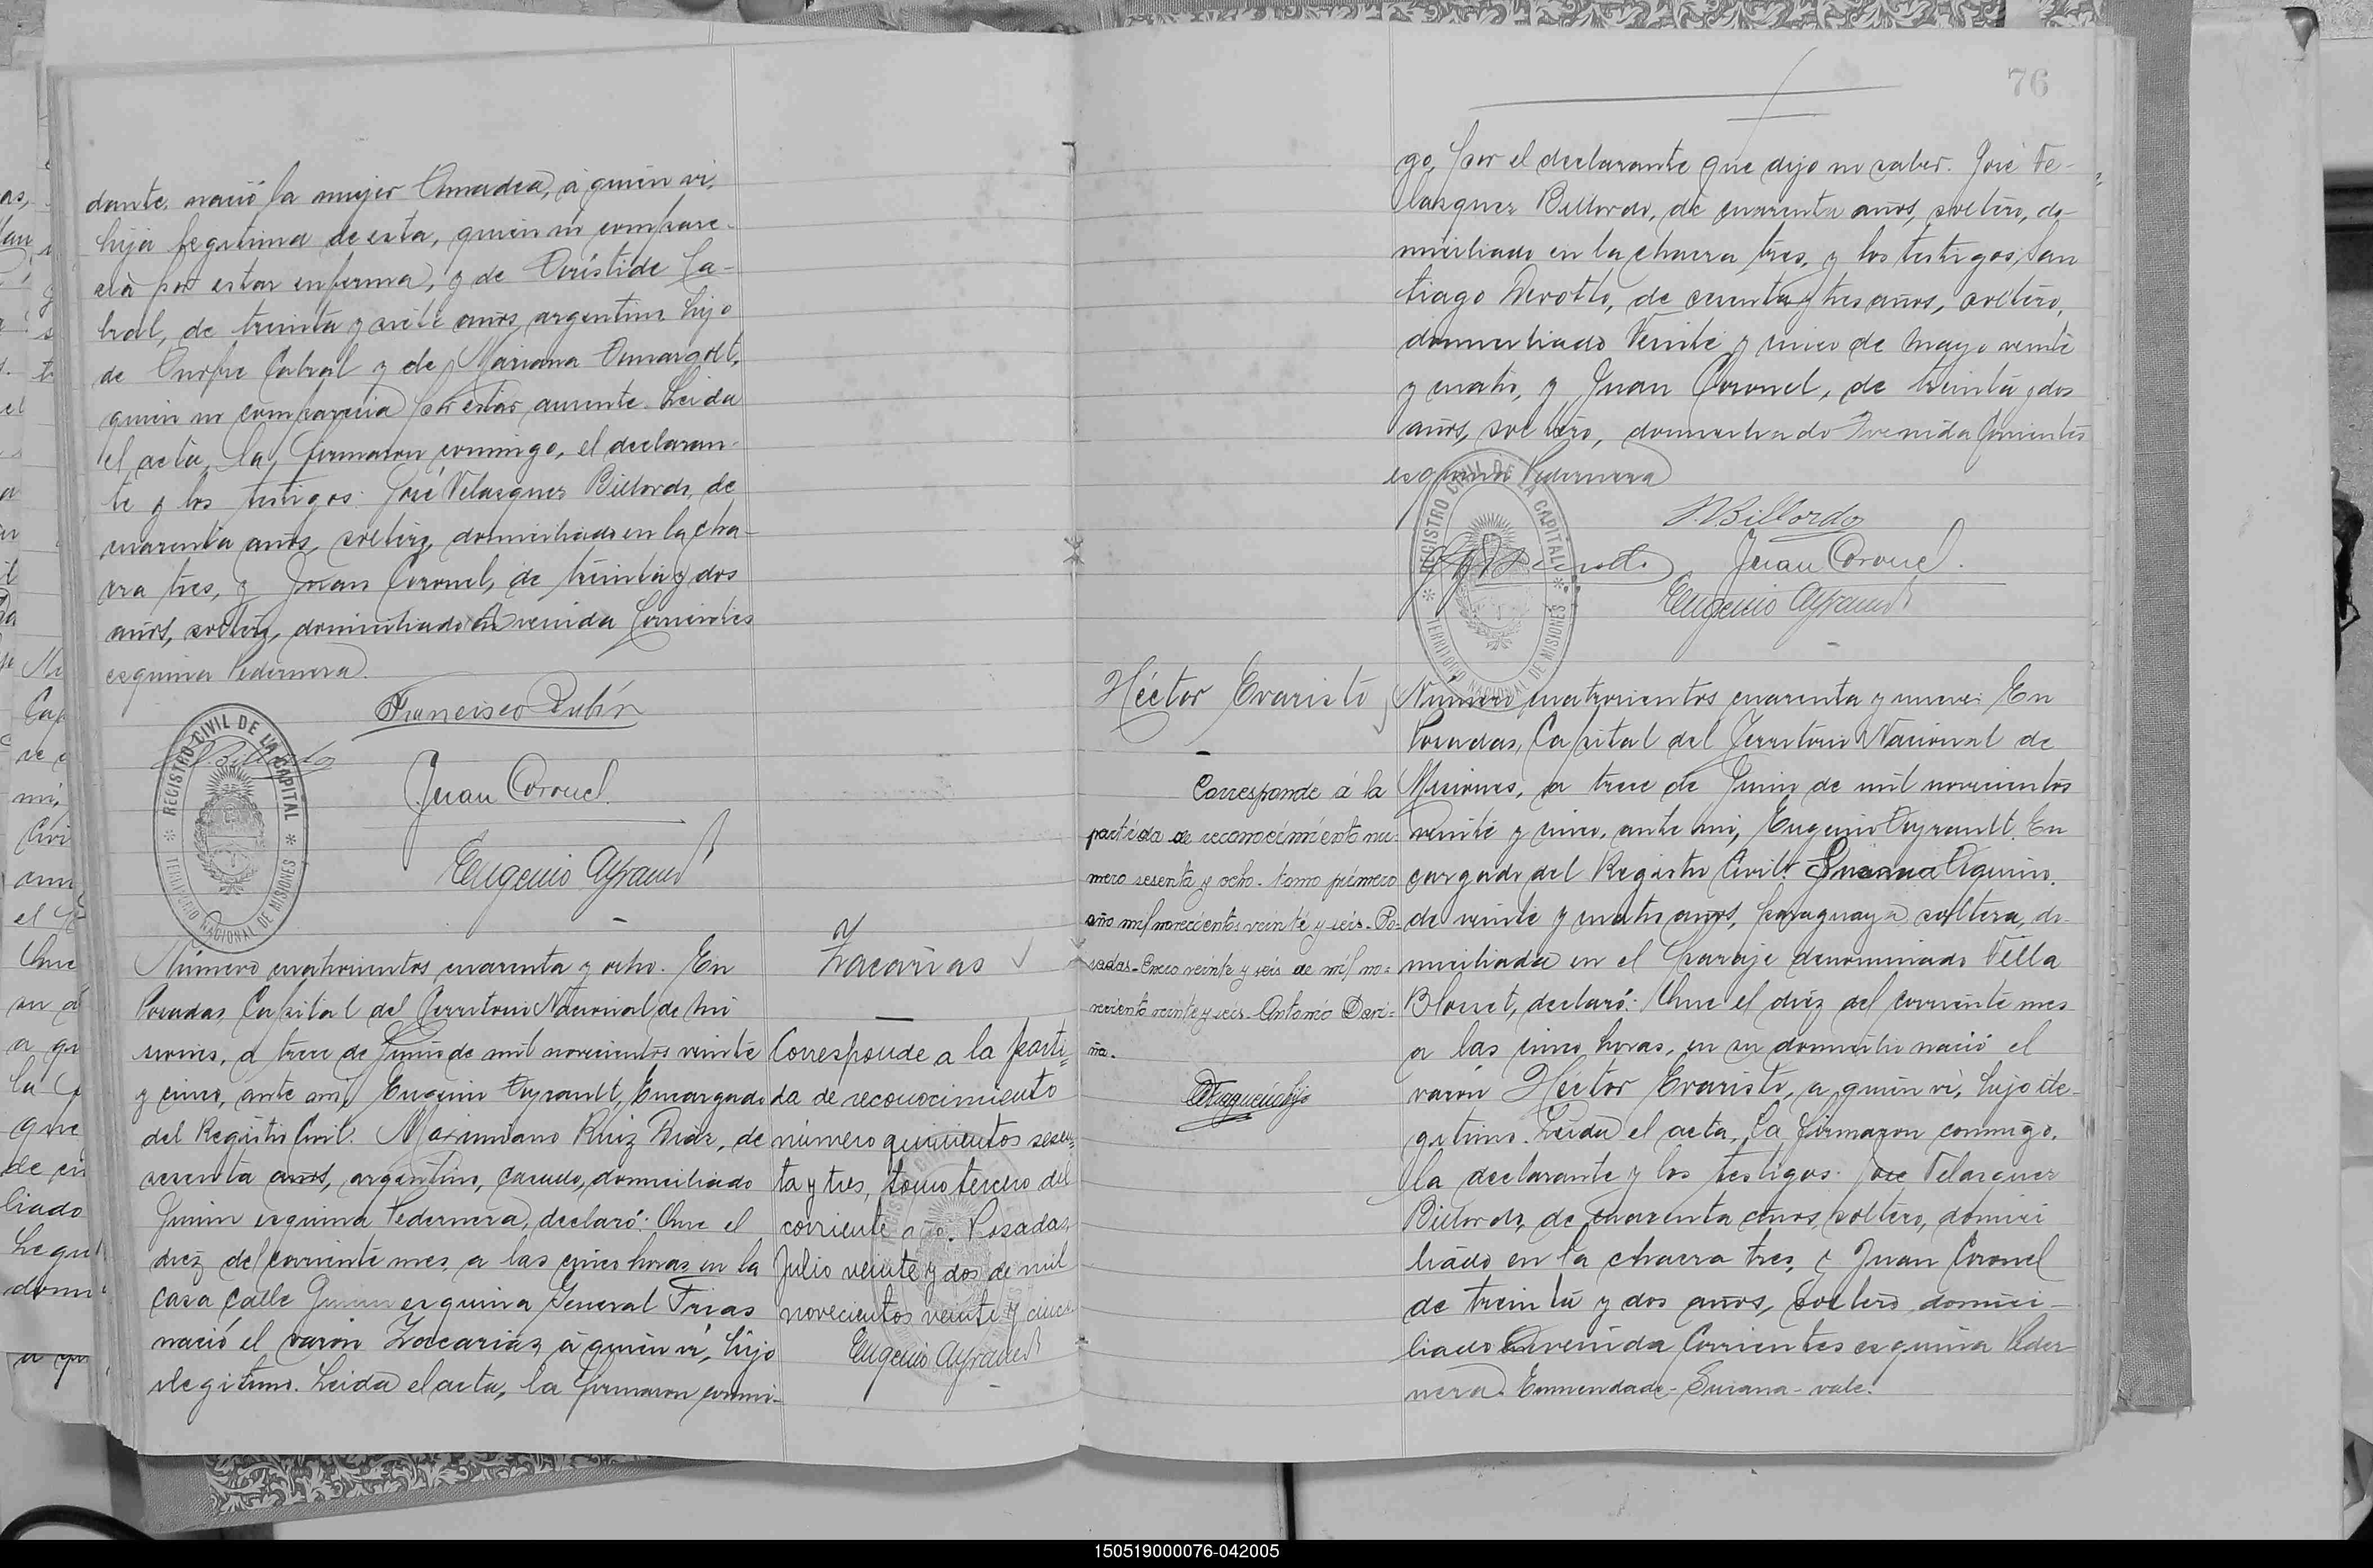 dante nació la mujer Amadea, a quién vi,
hija legitima de esta, quién no compare-
cía por estar enferma, y de Arístide Ca-
bral, de treinta y siete años argentino hijo
de Onofre Cabral y de Mariana
quién no comparecía por estar ausente. Leida
el acta, la, firmaron conmigo, el declaran-
te y los testigos: José Velasquez Billordo, de
cuarenta años, soltero, domiciliado en la cha-
cra tres, y Juan Coronel, de treinta y dos
años, soltero, domiciliado Avenida Corrientes
esquina Pedernera.
Francisco Rubín
Billordo
Juan Coronel
Eugenio Ayrault
REGISTRO CIVIL DE LA CAPITAL
TERRITORIO NACIONAL DE MISIONES
Número cuatrocientos cuarenta y ocho. En
Posadas, Capital del Territorio Nacional de Mi
siones, a trece de Junio de mil novecientos veinte
y cinco, ante mí, Eugenio Ayrault, Encargado
del Registro Civil: Maximiano Ruiz Diaz, de
sesenta años, argentino, casado, domiciliado
Junin esquina Pedernera, declaró: Que el
diez del corriente mes, a las cinco horas en la
casa calle Junin esquina General Frias
nació el varón Zacarias, a quién vi, hijo
ilegitimo. Leida el acta, la firmaron conmi-
Zacarias
Corresponde a la parti-
da de reconocimiento
número quinientos sesen-
ta y tres, tomo tercero del
corriente año. Posadas,
Julio veinte y dos de mil
novecientos veinte y cinco
Eugenio Ayrault
76
go, por el declarante que dijo no saber. José Ve-
lasquez Billordo, de cuarenta años, soltero, do-
miciliado en la chacra tres, y los testigos, San
tiago Derotto, de cuenta y tres años, soltero,
domiciliado Veinte y cinco de Mayo veinte
y cuatro, y Juan Coronel, de treinta y dos
años, soltero, domiciliado Avenida Corrientes
esquina Pedernera
J. Billordo
Juan Coronel.
Eugenio Ayrault
REGISTRO CIVIL DE LA CAPITAL
TERRITORIO NACIONAL DE MISIONES
Héctor Evaristo
Corresponde á la
partida de reconocimiento nu-
mero sesenta y ocho. tomo primero
año mil novecientos veinte y seis. Po-
sadas. Enero veinte y seis de mil no-
vecientos veinte y seis. Antonio Dari-
ña.
Número cuatrocientos cuarenta y nueve. En
Posadas, Capital del Territorio Nacional de
Misiones, a trece de Junio de mil novecientos
veinte y cinco, ante mí, Eugenio Ayrault, En
cargado del Registro Civil: Susana Aquino,
de veinte y cuatro años, paraguaya, soltera, do-
miciliada en el paraje denominado Villa
Blosset, declaró: Que el diez del corriente mes
a las cinco horas, en su domicilio nació el
varón Héctor Evaristo, a quién vi, hijo ile-
gitimo. Leida el acta, la firmaron conmigo,
la declarante y los testigos: José Velasquez
Billordo, de cuarenta años, soltero, domici
liado en la chacra tres, y Juan Coronel
de treinta y dos años, soltero domici-
liado Avenida Corrientes esquina Peder
nera. Enmendado - Susana - vale.
150519000076-042005